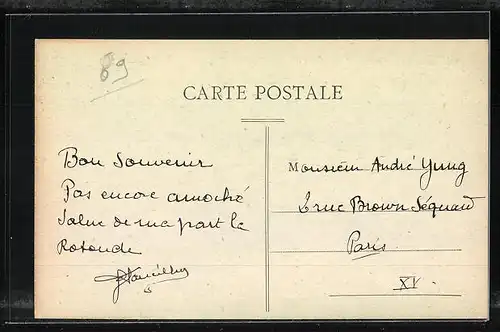 89
CARTE POSTALE
Bon Souvenir
Pas encore amoché
Salue de ma part la
Rotonde
Monsieur André Yung
2 rue Brown Séquard
Paris
XV